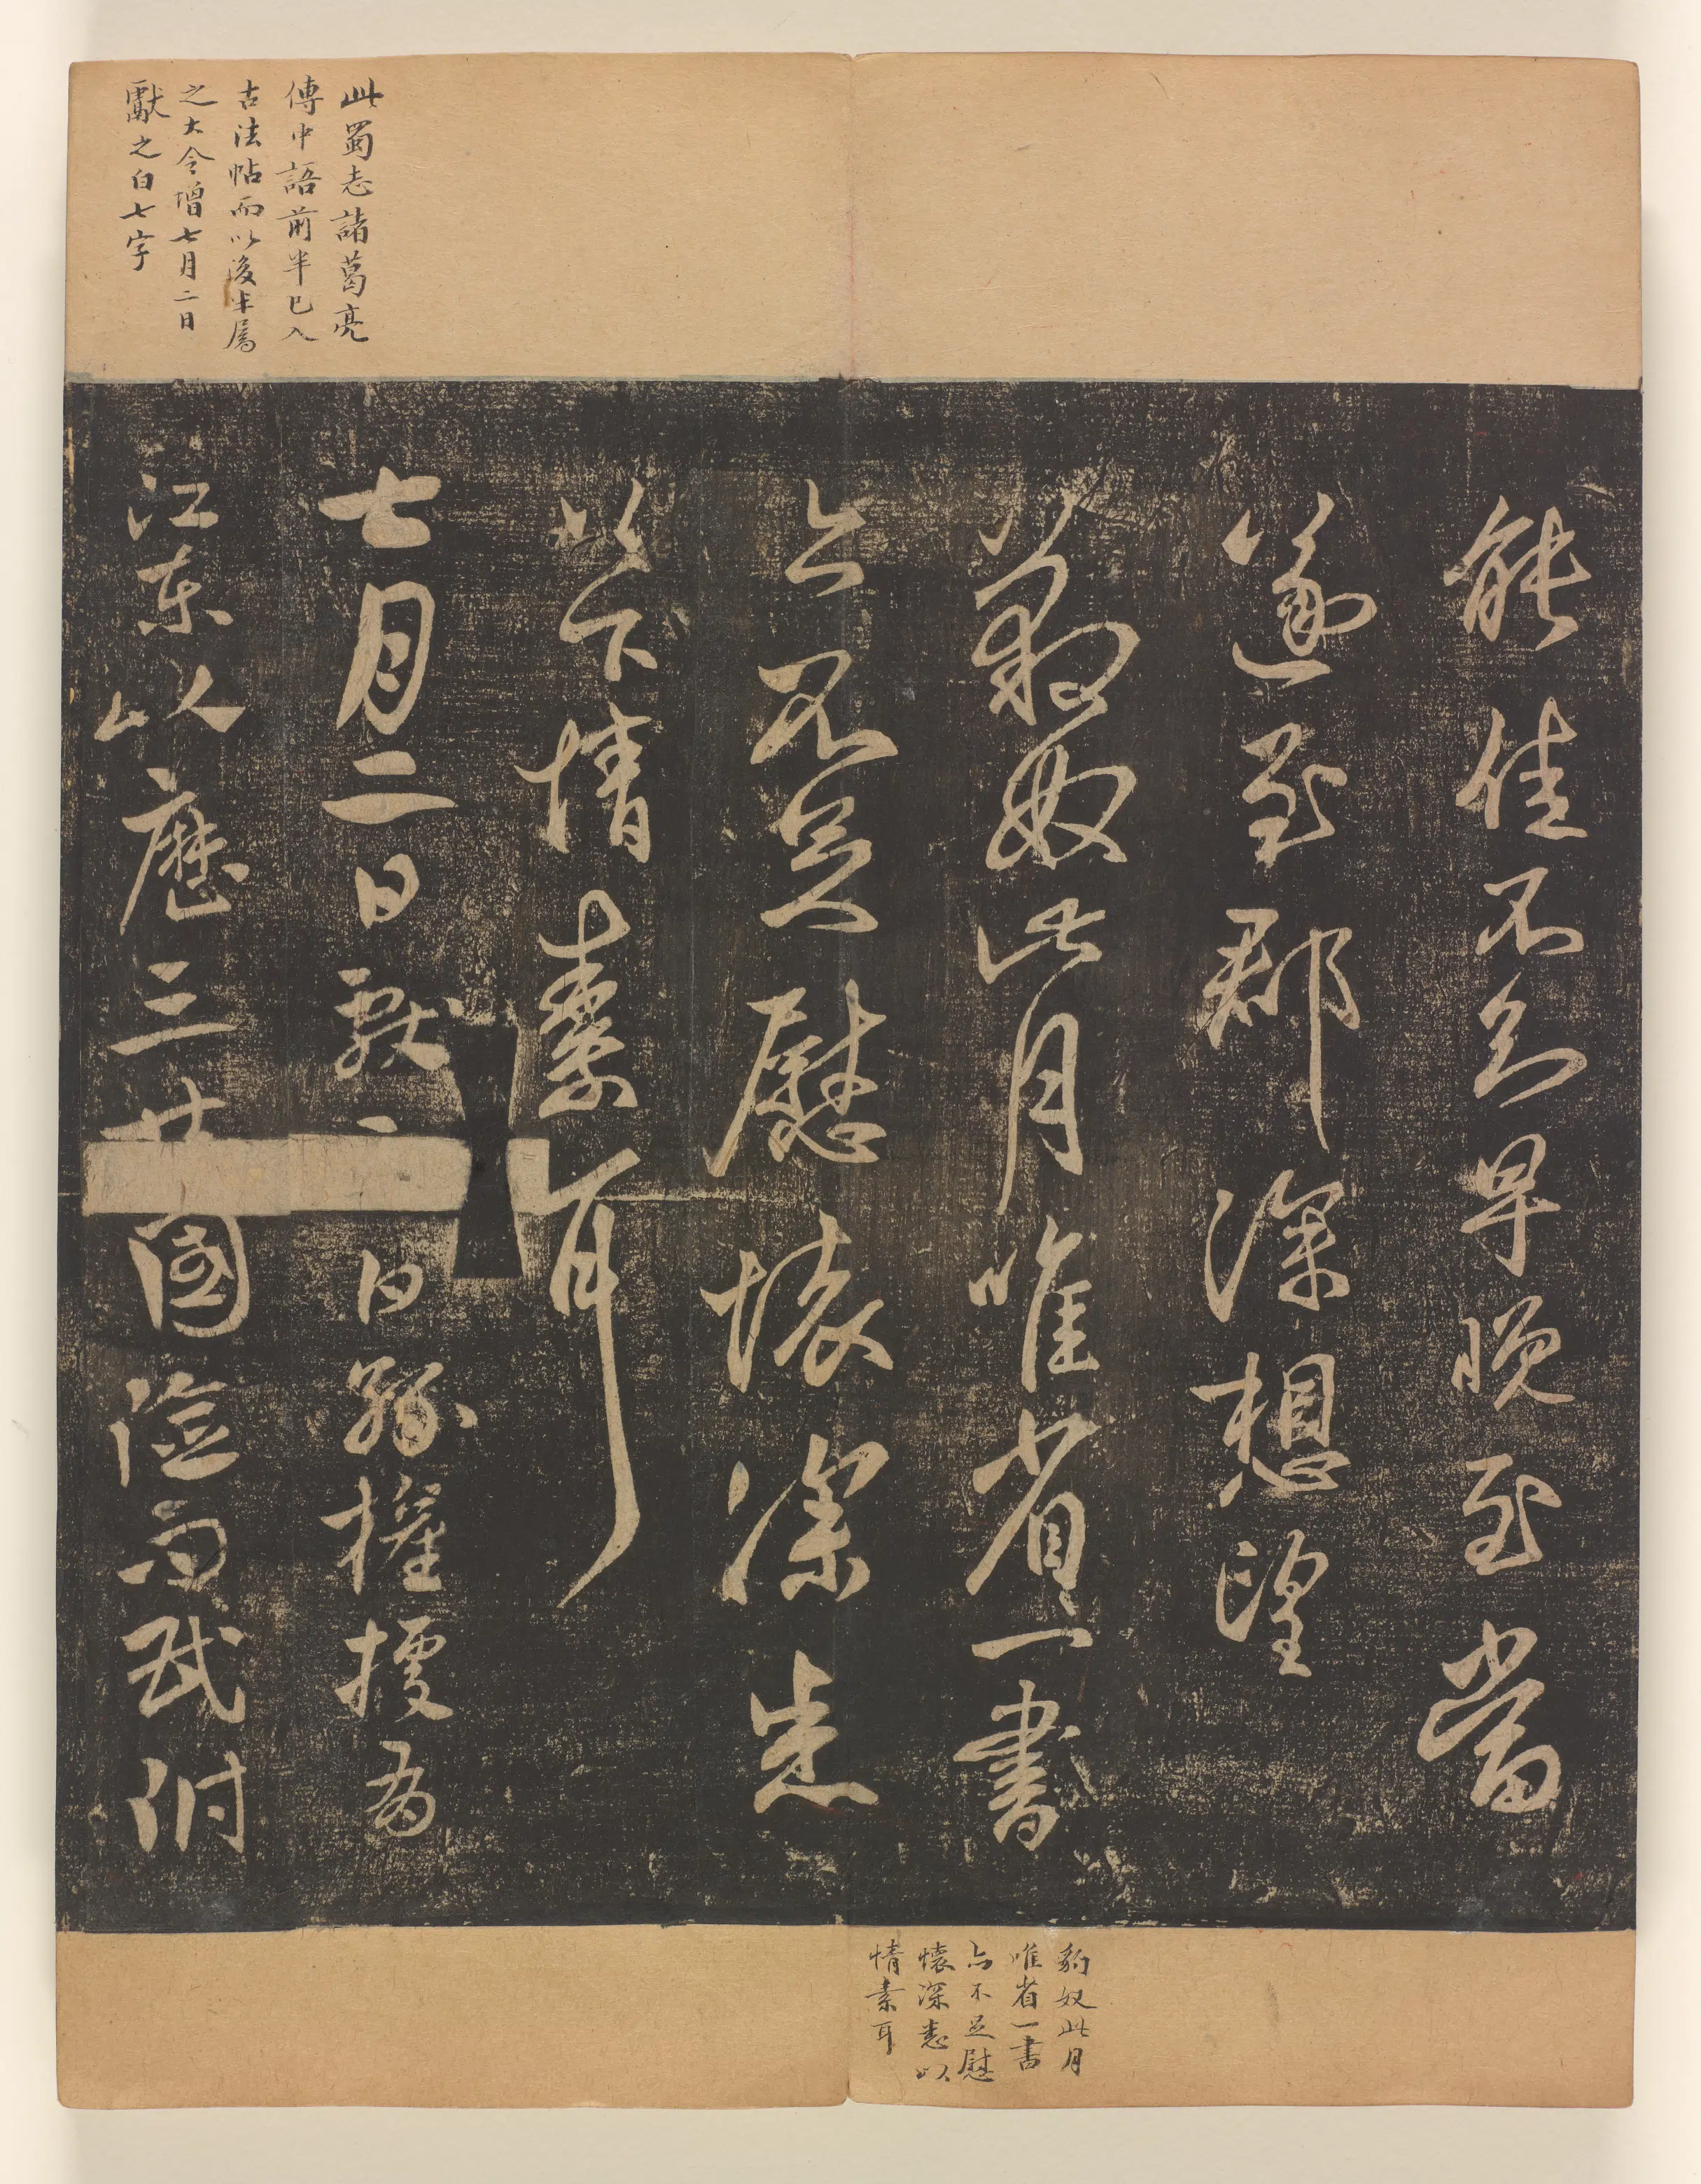 此蜀志諸葛亮
傳中語前半已入
古法帖而以後半屬
之大令增七月二日
獻之白七字
能佳不知早晚至當
遂至郡深想望
豹奴此月唯省一書
亦不足慰懷深悉
以下情素耳
七月二日獻之白孫權據有
江東以歷三世國險而民附
豹奴此月
唯省一書
亦不足慰
懷深悉以
情素耳